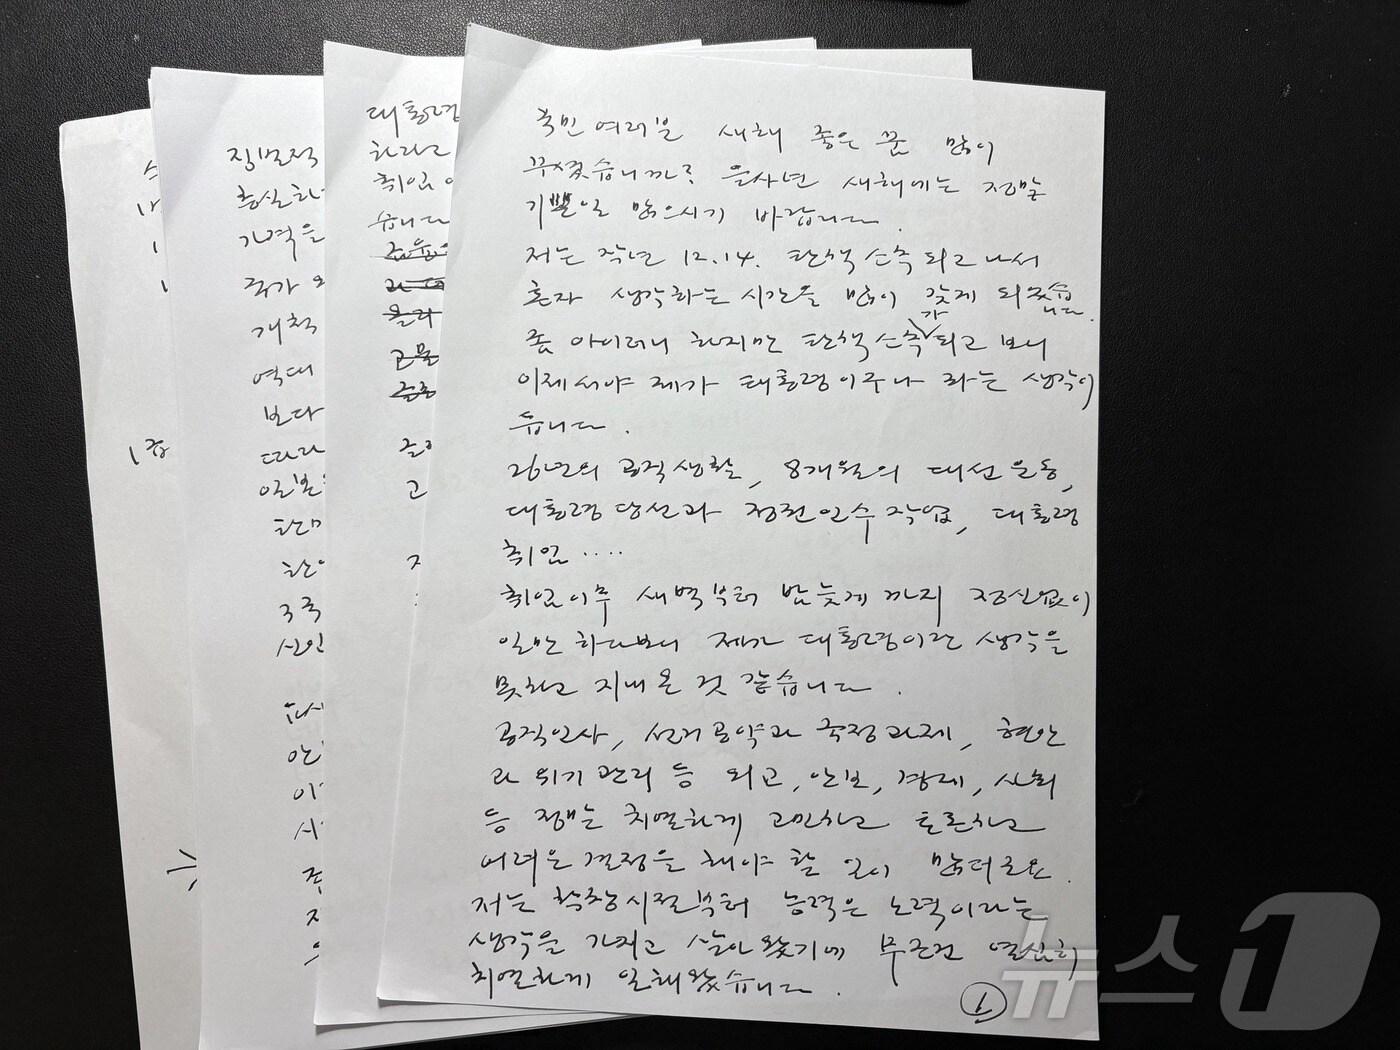 국민 여러분 새해 좋은 꿈 많이
꾸셨습니까? 을사년 새해에는 정말
기쁜일 많으시기 바랍니다.
저는 작년 12.14. 탄핵소추 되고나서
혼자 생각하는 시간을 많이 갖게 되었습
니다.
좀 아이러니 하지만 탄핵소추가 되고 보니
이제서야 제가 대통령이구나 라는 생각이
듭니다.
26년의 공직생활, 8개월의 대선 운동,
대통령 당선과 정권인수 작업, 대통령
취임 ....
취임이후 새벽부터 밤늦게 까지 정신없이
일만 하다보니 제가 대통령이란 생각을
못하고 지내온 것 같습니다.
공직인사, 선거공약과 국정과제, 현안
과 위기 관리 등 외교, 안보, 경제, 사회
등 정책는 치열하게 고민하고 토론하고
어려운 결정을 해야 할 일이 많더군요.
저는 학창시절부터 능력은 노력이라는
생각을 가지고 살아 왔기에 무조건 열심히
치열하게 일해왔습니다.
1
대통령
하라고
취임
습니다
고
집번적
충실하
가격을
국가
개척
역대
보다
따라
일본
한미
3국
1층
뉴스1